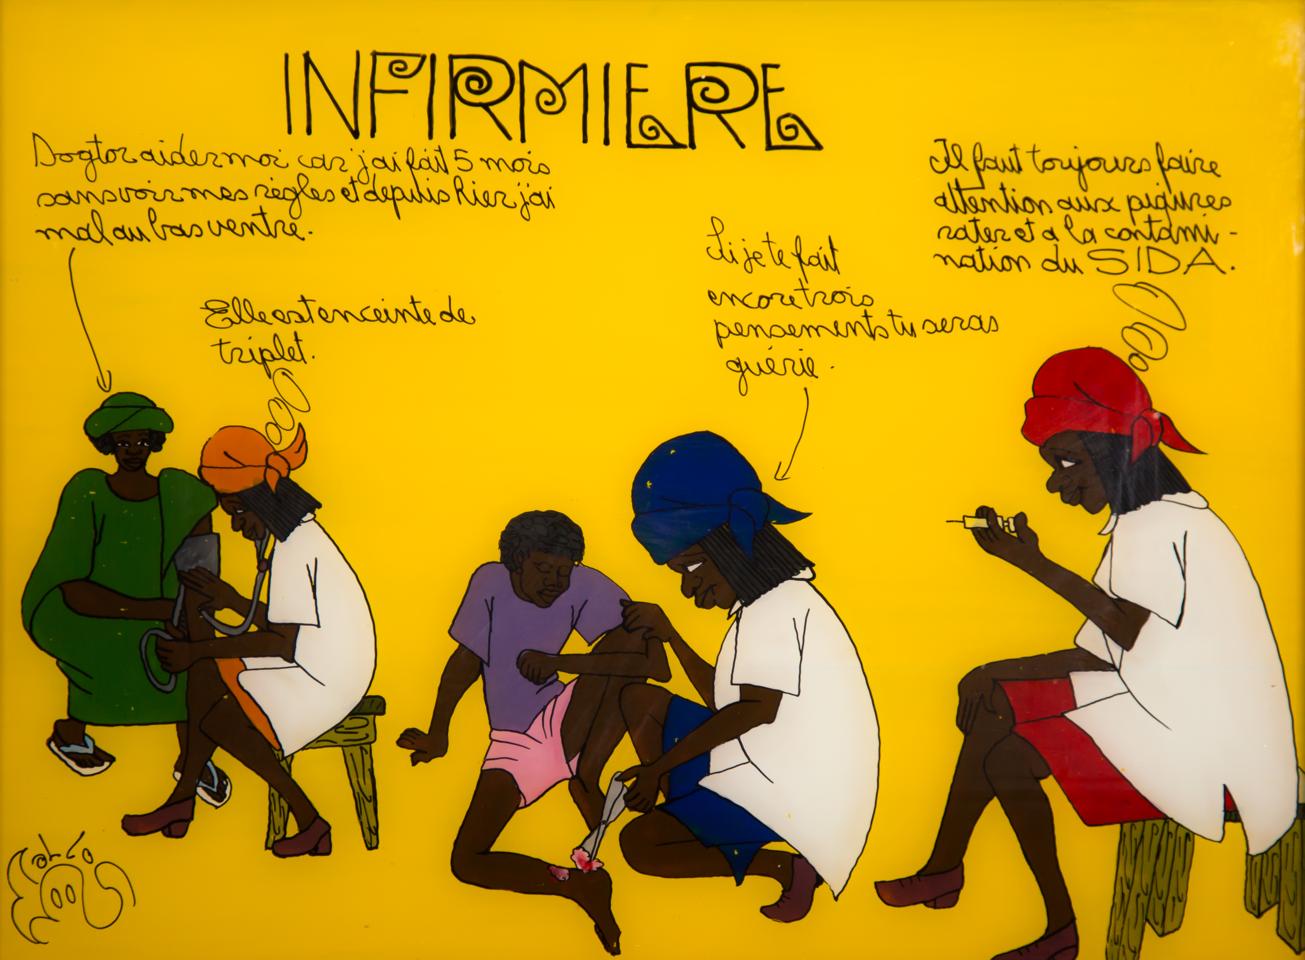 INFIRMIERE
Dogtor aider moi car j'ai fait 5 mois
sans voir mes règles et depuis hier j'ai
mal au bas ventre.
Elle est enceinte de
triplet.
Si je te fait
encore trois
pensements tu seras
guérie.
Il faut toujours faire
attention aux piqûres
rater et a la contami-
nation du SIDA.